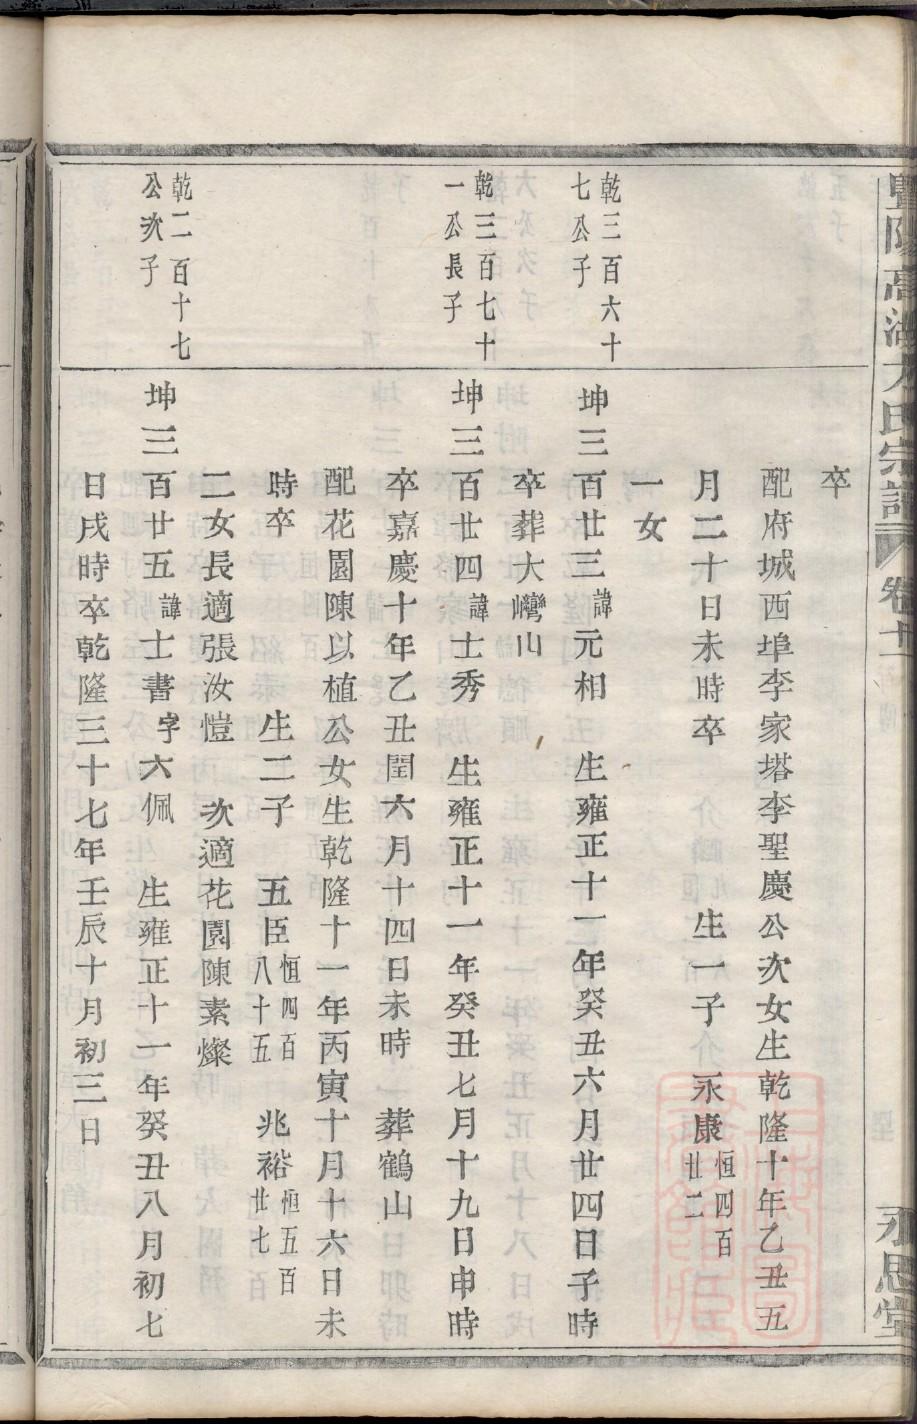 暨陽高湖方氏宗譜
卷十一
永思堂
卒
配府城西埠李家塔李聖慶公次女生乾隆十年乙丑五
月二十日未時卒 生一子 永康恒四百廿二
一女
乾三百六十七公子
坤三百廿三諱元相 生雍正十一年癸丑六月廿四日子時
卒葬大灣山
乾三百七十一公長子
坤三百廿四諱士秀 生雍正十一年癸丑七月十九日申時
卒嘉慶十年乙丑閏六月十四日未時 葬鶴山
配花園陳以植公女生乾隆十一年丙寅十月十六日未
時卒 生二子 五臣恒四百八十五 兆裕恒五百廿七
二女長適張汝愷 次適花園陳素燦
乾二百十七公次子
坤三百廿五諱士書字六佩 生雍正十一年癸丑八月初七
日戌時卒乾隆三十七年壬辰十月初三日